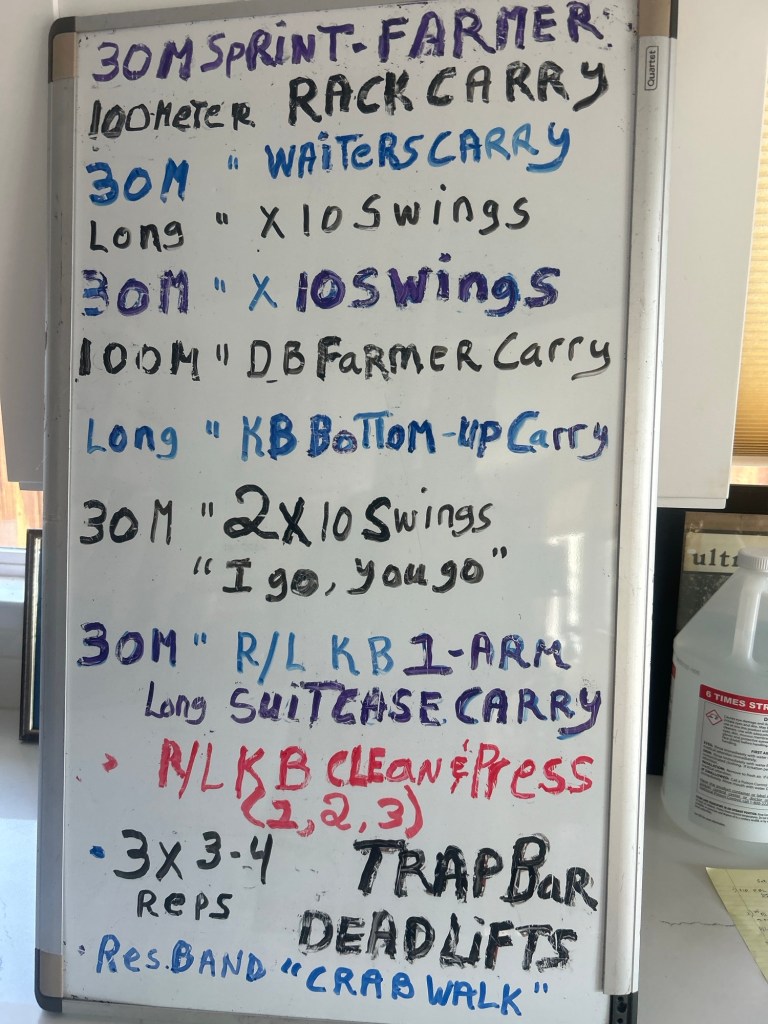 30M SPRINT - FARMER
100 METER RACK CARRY
30M " WAITERS CARRY
Long " X 10 Swings
30M " X 10 Swings
100M " DB FARMER Carry
Long " KB BOTTOM-UP Carry
30M " 2X10 Swings
"I go, you go"
30M " R/L KB 1-ARM
Long SUITCASE CARRY
R/L KB CLEan & Press
(1, 2, 3)
• 3X 3-4 TRAP BaR
Reps DEADLIFTS
• Res. BAND "CRAB WALK"
Quartet
ulti
6 TIMES STR